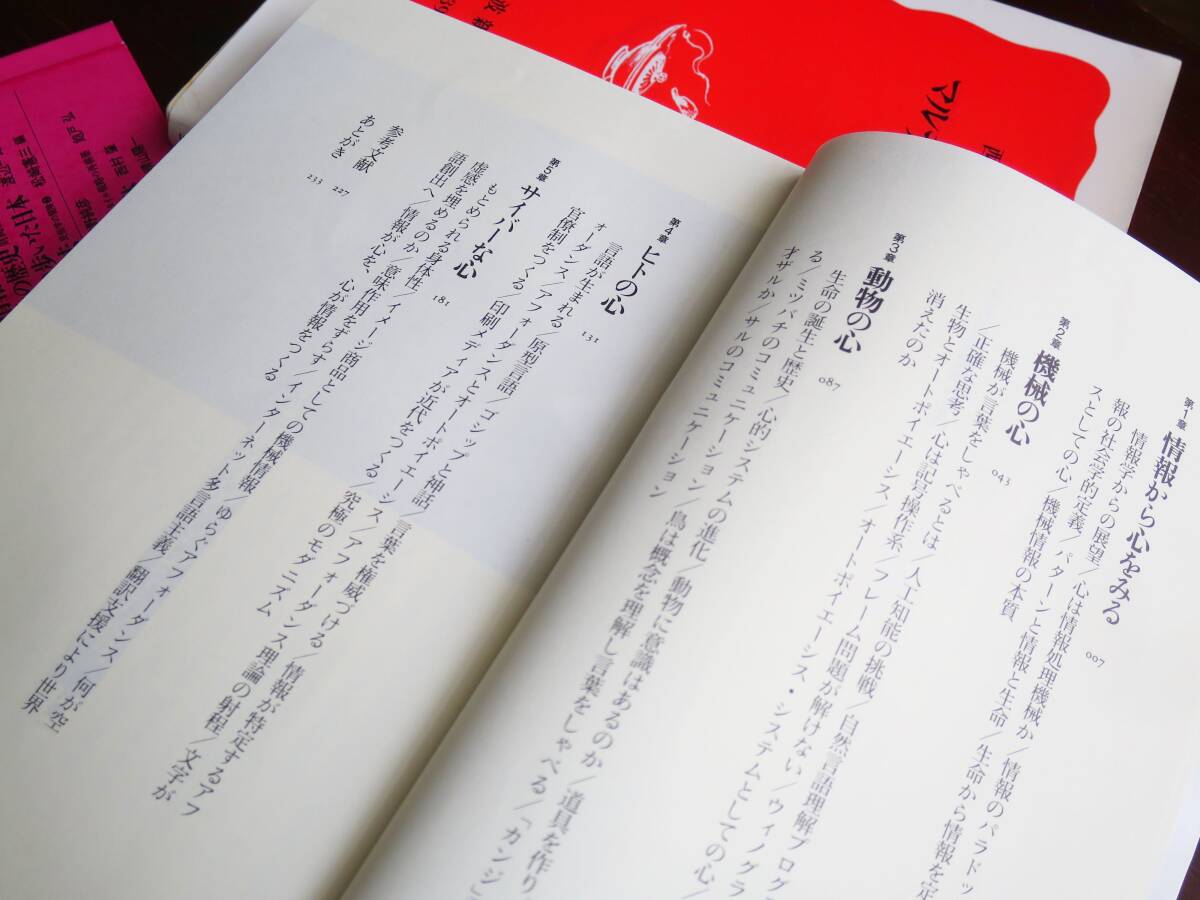 第1章 情報から心をみる 007
情報学からの展望/心は情報処理機械か/情報のパラドッ
報の社会学的定義/パターンと情報と生命/生命から情報を定
スとしての心/機械情報の本質
第2章 機械の心 043
機械が言葉をしゃべるとは/人工知能の挑戦/自然言語理解プログ
/正確な思考/心は記号操作系/フレーム問題が解けない/ウィノグラ
生物とオートポイエーシス/オートポイエーシス・システムとしての心/
消えたのか
第3章 動物の心 087
生命の誕生と歴史/心的システムの進化/動物に意識はあるのか/道具を作り
る/ミツバチのコミュニケーション/鳥は概念を理解し言葉をしゃべる/「カンジ」
オザルか/サルのコミュニケーション
第4章 ヒトの心 131
言語が生まれる/原型言語/ゴシップと神話/言葉を権威づける/情報が特定するアフ
オーダンス/アフォーダンスとオートポイエーシス/アフォーダンス理論の射程/文字が
官僚制をつくる/印刷メディアが近代をつくる/究極のモダニズム
第5章 サイバーな心 181
もとめられる身体性/イメージ商品としての機械情報/ゆらぐアフォーダンス/何が空
虚感を埋めるのか/意味作用をずらす/インターネット多言語主義/翻訳支援により世界
語創出へ/情報が心を、心が情報をつくる
参考文献 227
あとがき 233
歩いた日本